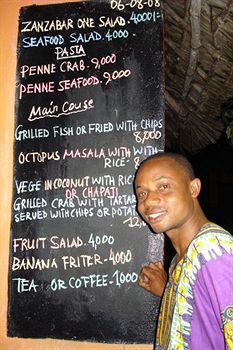 06-08-08
ZANZABAR ONE SALAD. 4000/=
SEAFOOD SALAD. 4000
PASTA
PENNE CRAB. 9,000
PENNE SEAFOOD. 9,000
Main Couse
GRILLED FISH OR FRIED WITH CHIPS
8,000
OCTOPUS MASALA WITH WITH
RICE-
VEGE IN COCONUT WITH RICE
OR CHAPATI
GRILLED CRAB WITH TARTAR
SERVED WITH CHIPS OR POTATO
FRUIT SALAD. 4,000
BANANA FRITER-4000
TEA OR COFFEE-1000